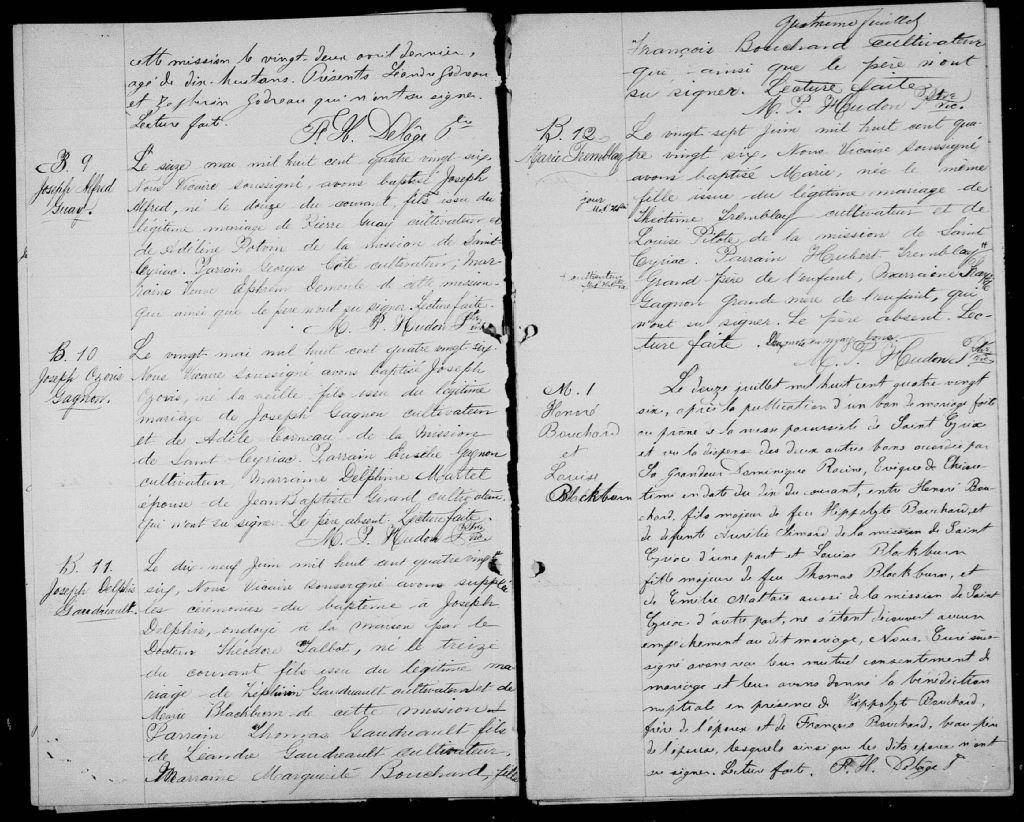 cette mission le vingt-deux avril dernier,
agé de dix-huit ans. Présents Léandre Godreau
et Zéphirin Godreau qui n'ont su signer.
Lecture faite.
F. H. Delâge Ptre
B. 9
Joseph Alfred
Guay.
Le seize mai mil huit cent quatre vingt six
Nous Vicaire soussigné, avons baptisé Joseph
Alfred, né le douze du courant, fils issu du
légitime mariage de Pierre Guay cultivateur et
de Adéline Potvin de la mission de Saint
Cyriac. Parrain Georges Côté cultivateur; Mar-
raine Veuve Ephrem Demeule de cette mission
qui ainsi que le père n'ont su signer. Lecture faite.
M. P. Hudon Ptre vic.
B. 10
Joseph Ozoïs
Gagnon.
Le vingt mai mil huit cent quatre vingt six
Nous Vicaire soussigné avons baptisé Joseph
Ozoïs, né la veille, fils issu du légitime
mariage de Joseph Gagnon cultivateur
et de Adèle Corneau de la mission
de Saint Cyriac. Parrain Gagnon
cultivateur Marraine Delphine Martel
épouse de Jean Baptiste Girard cultivateur,
qui n'ont su signer. Le père absent. Lecture faite.
M. P. Hudon Ptre vic.
B. 11.
Joseph Delphis
Gaudreault.
Le dix-neuf Juin mil huit cent quatre vingt
six, Nous Vicaire soussigné avons supplée
les cérémonies du baptême à Joseph
Delphis, ondoyé à la maison par le
Docteur Théodore Talbot, né le treize
du courant fils issu du légitime ma-
riage de Zéphirin Gaudreault cultivateur et de
Marie Blackburn de cette mission
Parrain Thomas Gaudreault fils
de Léandre Gaudreault cultivateur,
Marraine Marguerite Bouchard, fille
quatrième feuillet
François Bouchard cultivateur
qui ainsi que le père n'ont
su signer. Lecture faite
M. P. Hudon Ptre vic.
B. 12
Marie Tremblay
Le vingt sept Juin mil huit cent qua-
tre vingt six, Nous Vicaire soussigné
avons baptisé Marie, née le même
jour
fille issue du légitime mariage de
Théotime Tremblay cultivateur et de
Louise Pilote de la mission de Saint
Cyriac. Parrain Hubert Tremblay
Grand-père de l'enfant, Marraine
Gagnon grand mère de l'enfant, qui
n'ont su signer. Le père absent. Lec-
ture faite.
M. P. Hudon Ptre vic.
M. 1
Honoré
Bouchard
et
Louise
Blackburn
Le douze juillet mil huit cent quatre vingt
six, après la publication d'un ban de mariage faite
au prône de la messe paroissiale de Saint Cyriac
et vu la dispense des deux autres bans accordée par
Sa Grandeur Dominique Racine, Evêque de Chicou-
timi en date du dix du courant, entre Honoré Bou-
chard, fils majeur de feu Hippolyte Bouchard, et
de défunte Aurélie Simard de la mission de Saint
Cyriac d'une part et Louise Blackburn
fille majeure de feu Thomas Blackburn, et
de Emilie Maltais aussi de la mission de Saint
Cyriac d'autre part, ne s'étant découvert aucun
empêchement au dit mariage, Nous, Curé sous-
signé avons reçu leur mutuel consentement de
mariage et leur avons donné la bénédiction
nuptiale en présence de Hippolyte Bouchard,
frère de l'époux et de François Bouchard, beau-père
de l'épouse, lesquels ainsi que les dits époux n'ont
su signer. Lecture faite. F. H. Delâge P